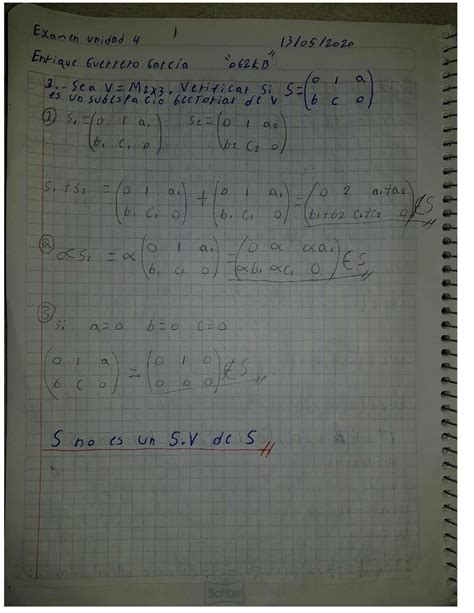 Examen unidad 4 1 13/05/2020
Enrique Guerrero García "062KB"
3.- Sea V = M2x3. Verificar Si S = (0 1 a
b c 0)
es un subespacio vectorial de V
① S1 = (0 1 a1
b1 c1 0) S2 = (0 1 a2
b2 c2 0)
S1 + S2 = (0 1 a1
b1 c1 0) + (0 1 a1
b1 c1 0) = (0 2 a1+a2
b1+b2 c1+c2 0) ∉ S
② αS1 = α (0 1 a1
b1 c1 0) = (0 α αa1
αb1 αc1 0) ∈ S
③
Si a=0 b=0 c=0
(0 1 a
b c 0) = (0 1 0
0 0 0) ∉ S
S no es un S.V de S //
Scribe